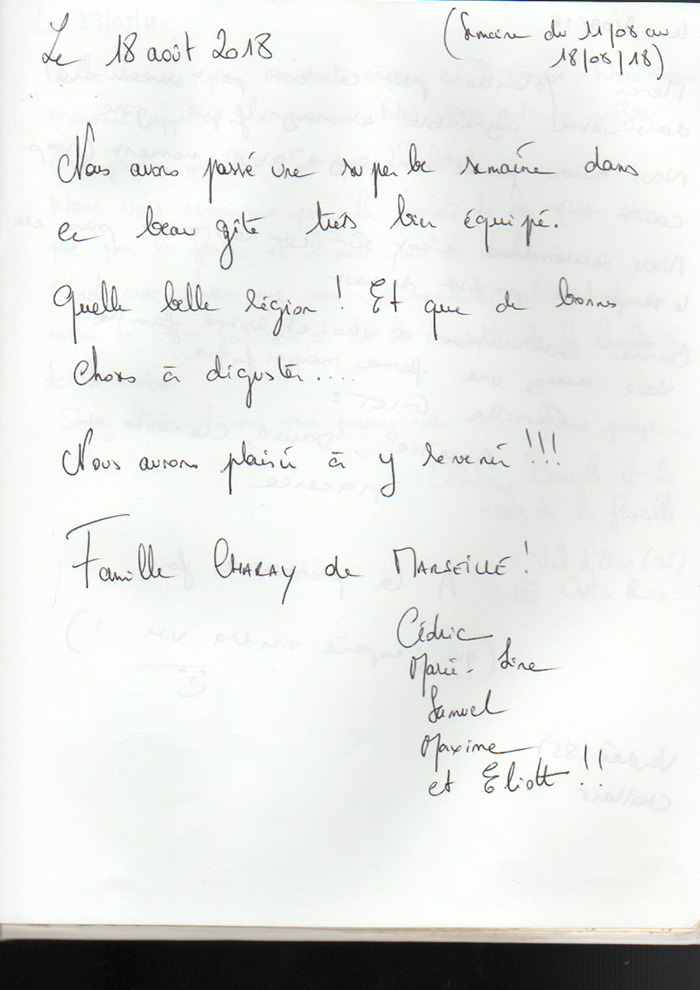 Le 18 août 2018
(Semaine du 11/08 au
18/08/18)
Nous avons passé une superbe semaine dans
ce beau gîte très bien équipé.
Quelle belle région ! Et que de bonnes
choses à déguster....
Nous aurons plaisir à y revenir !!!
Famille CHARAY de MARSEILLE !
Cédric
Marie-Line
Samuel
Maxime
et Eliott !!